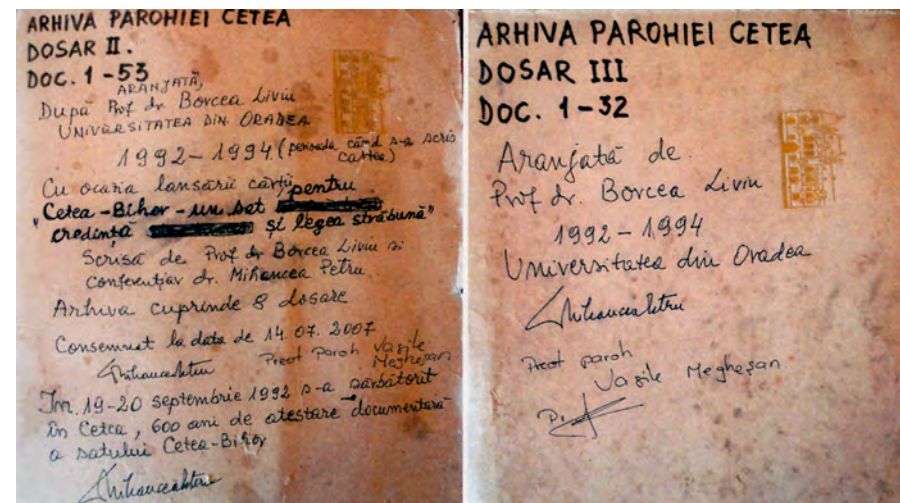 ARHIVA PAROHIEI CETEA
DOSAR II.
DOC. 1-53
ARANJATĂ,
După Prof dr. Borcea Liviu
UNIVERSITATEA DIN ORADEA
1992-1994 (perioada când s-a scris
cartea)
Cu ocazia lansării cărții pentru
"Cetea-Bihor-un sat
credință și legea străbună"
Scrisă de Prof dr Borcea Liviu si
conferențiar dr. Mihancea Petru
Arhiva cuprinde 8 dosare
Consemnat la data de 14.07.2007
Mihancea Petru Preot paroh Vasile
Megheșan
În 19-20 septembrie 1992 s-a sărbătorit
în Cetea, 600 ani de atestare documentară
a satului Cetea-Bihor
Mihancea Petru
ARHIVA PAROHIEI CETEA
DOSAR III
DOC. 1-32
Aranjată de
Prof dr. Borcea Liviu
1992-1994
Universitatea din Oradea
Mihancea Petru
Preot paroh
Vasile Megheșan